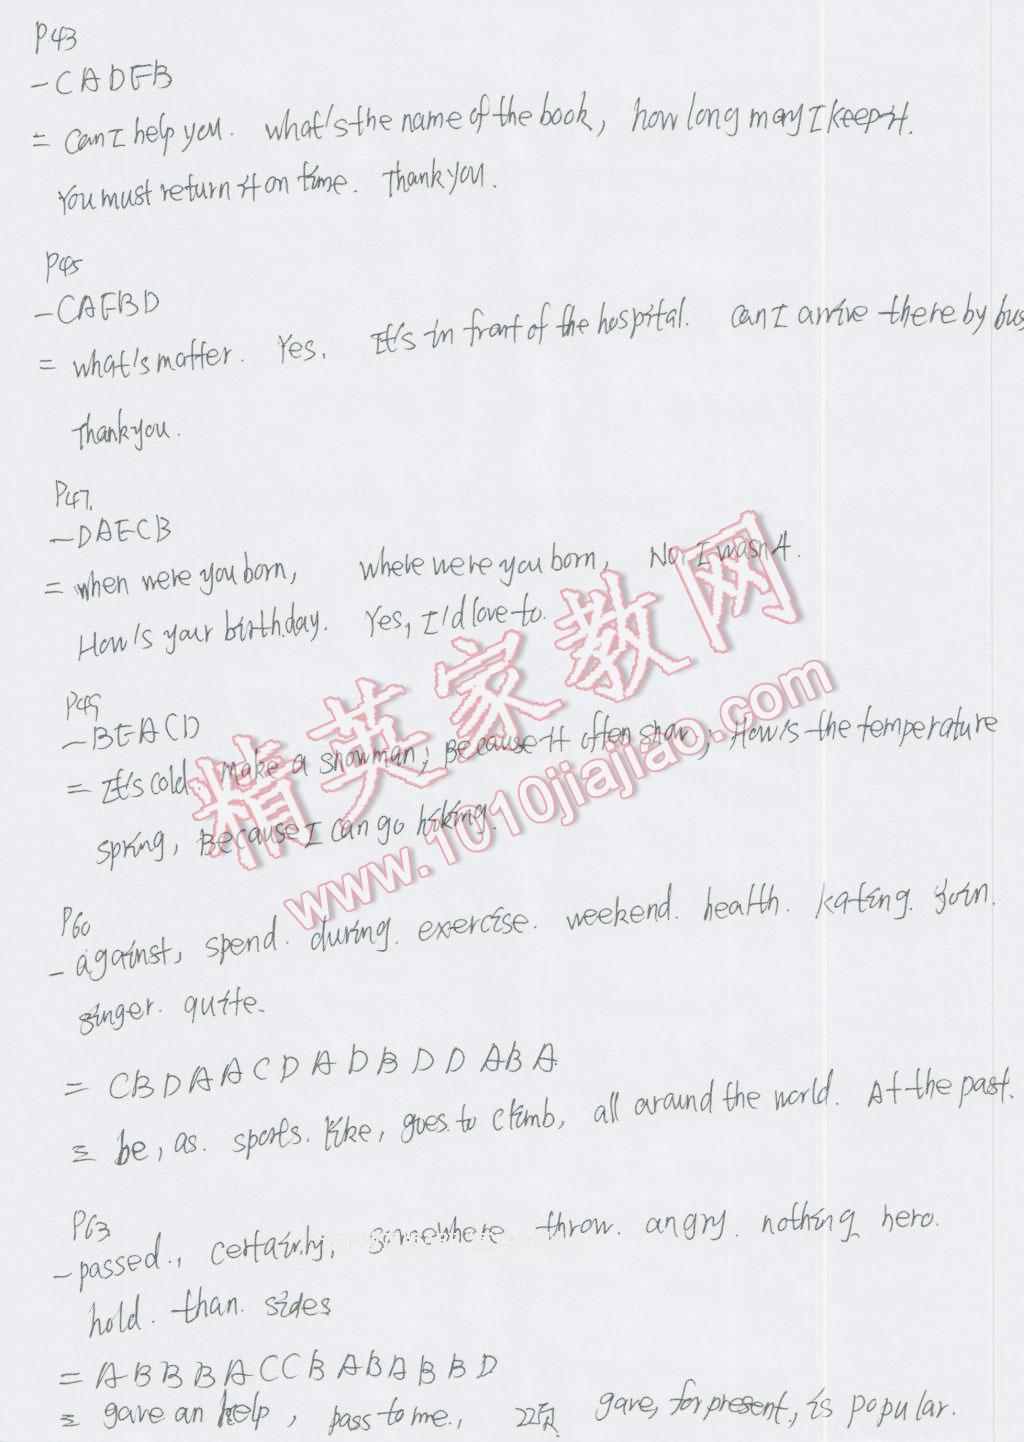 P43
一 CADEB
二 Can I help you. What's the name of the book, how long may I keep it.
You must return it on time. Thank you.
P45
一 CAEBD
二 what's matter. Yes. It's in front of the hospital. Can I arrive there by bus
Thank you.
P47.
一 DAECB
二 when were you born, where were you born, No, I wasn't.
How's your birthday. Yes, I'd love to.
P49
一 BEACD
二 It's cold. Make a snowman; Because it often snow; How's the temperature
spring, Because I can go hiking.
精英家教网
www.1010jiajiao.com
P60
一 against, spend. during. exercise. weekend. health. kating. join.
singer. quite.
二 CBDAACDADBDDABA
三 be, as. sports. like, goes to climb, all around the world. At the past.
P63
一 passed., certainly, somewhere throw. angry. nothing hero.
hold. than. sides
二 ABBBACCBABABBD
三 gave an help, pass to me., 22页 gave, for present, is popular.